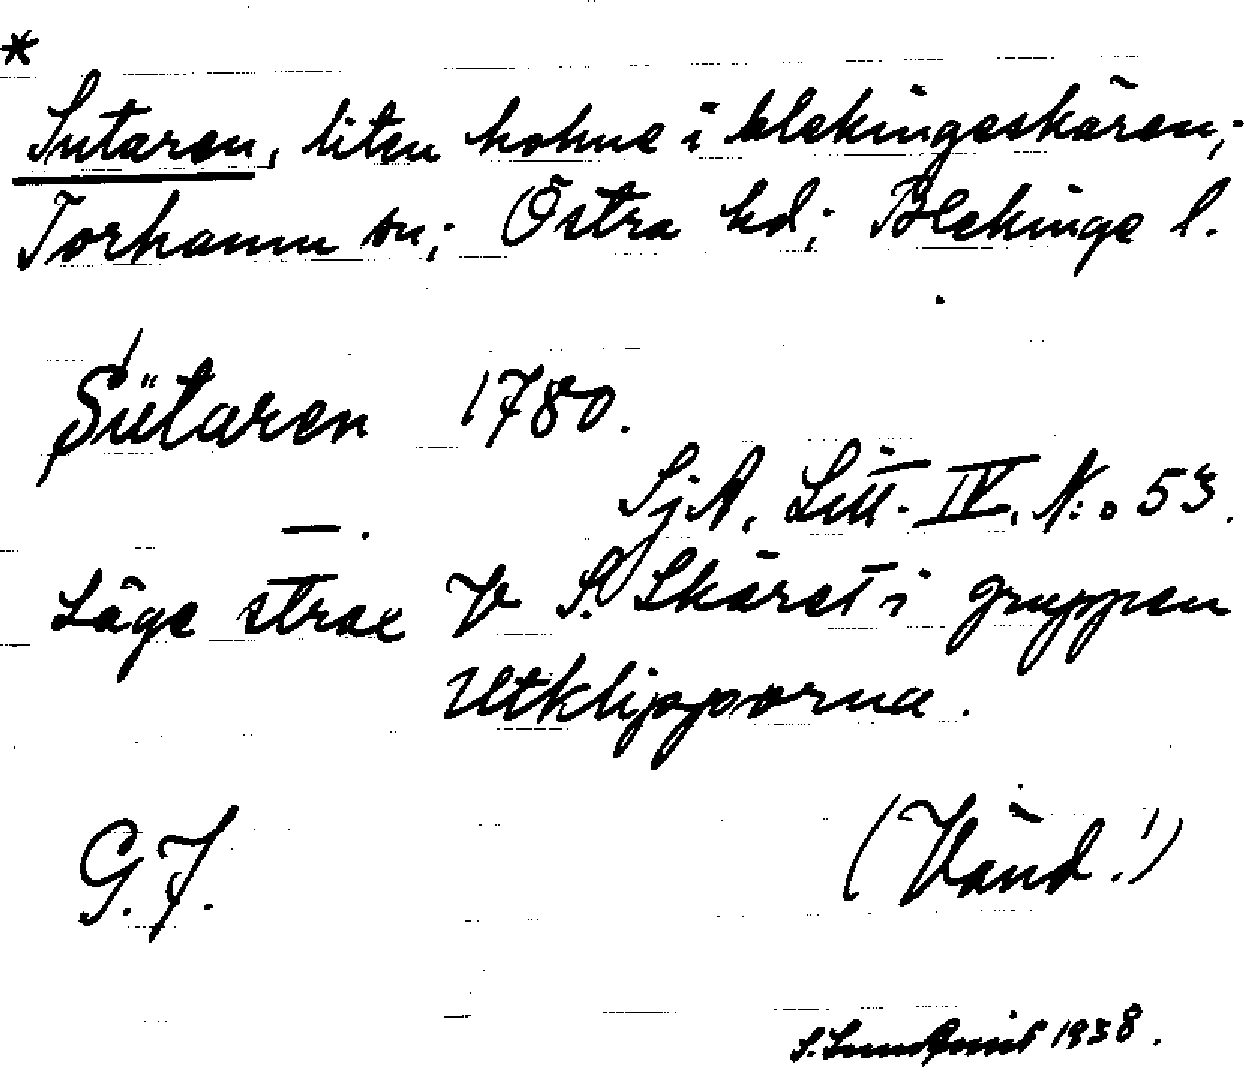 *
Sutaren, liten holme i blekingeskären;
Torhamn sn; Östra hd; Blekinge l.
Sütaren 1780.
SjA. Litt. IV. N:o 53.
—.
Läge strax V S. Skäret i gruppen
Utklipporna.
G.F. (Vänd!)
S. Lundqvist 1938.